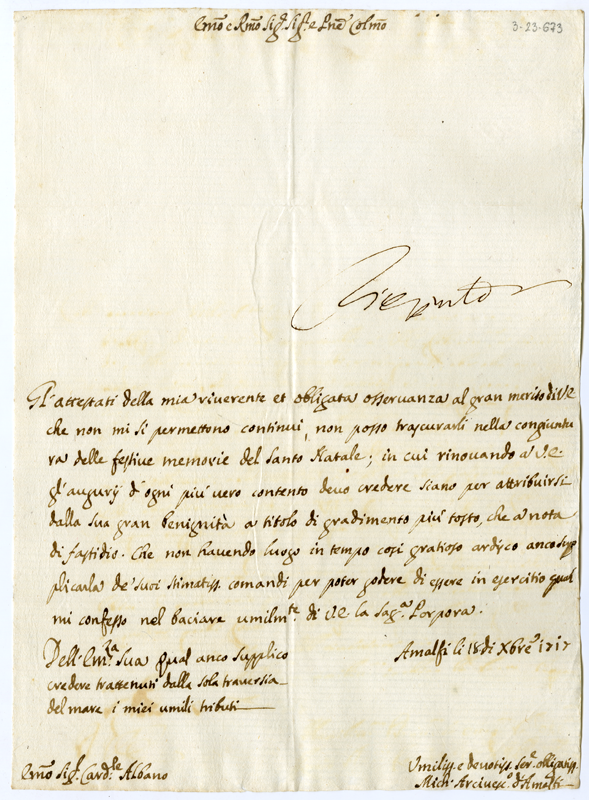 Emõ e Rmõ Sig.r Sig.r e Prñe Colmõ
3-23-673
Gl'attestati della mia riverente et obligata osseruanza al gran merito di VE
che non mi si permettono continui, non posso trascurarli nella congiuntu
ra delle festive memorie del Santo Natale; in cui rinouando a VE
gl'augurij d'ogni piú vero contento deuo credere siano per attribuirsi
dalla sua gran benignità a titolo di gradimento piú tosto, che a nota
di fastidio. Che non hauendo luogo in tempo cosi gratioso ardisco anco sup
plicarla de' suoi stimatiss. comandi per poter godere di essere in esercitio qual
mi confesso nel baciare umilm.te di VE la sag.a Porpora.
Dell'Em.za Sua qual anco supplico
credere trattenuti dalla sola traversia
del mare i miei umili tributi
Amalfi li 18 di Xbre 1717
Emõ Sig.r Card.le Albano
Umiliss. e deuotiss. Ser.e obligatiss.
Mich. Arciuesc.o d'Amalfi